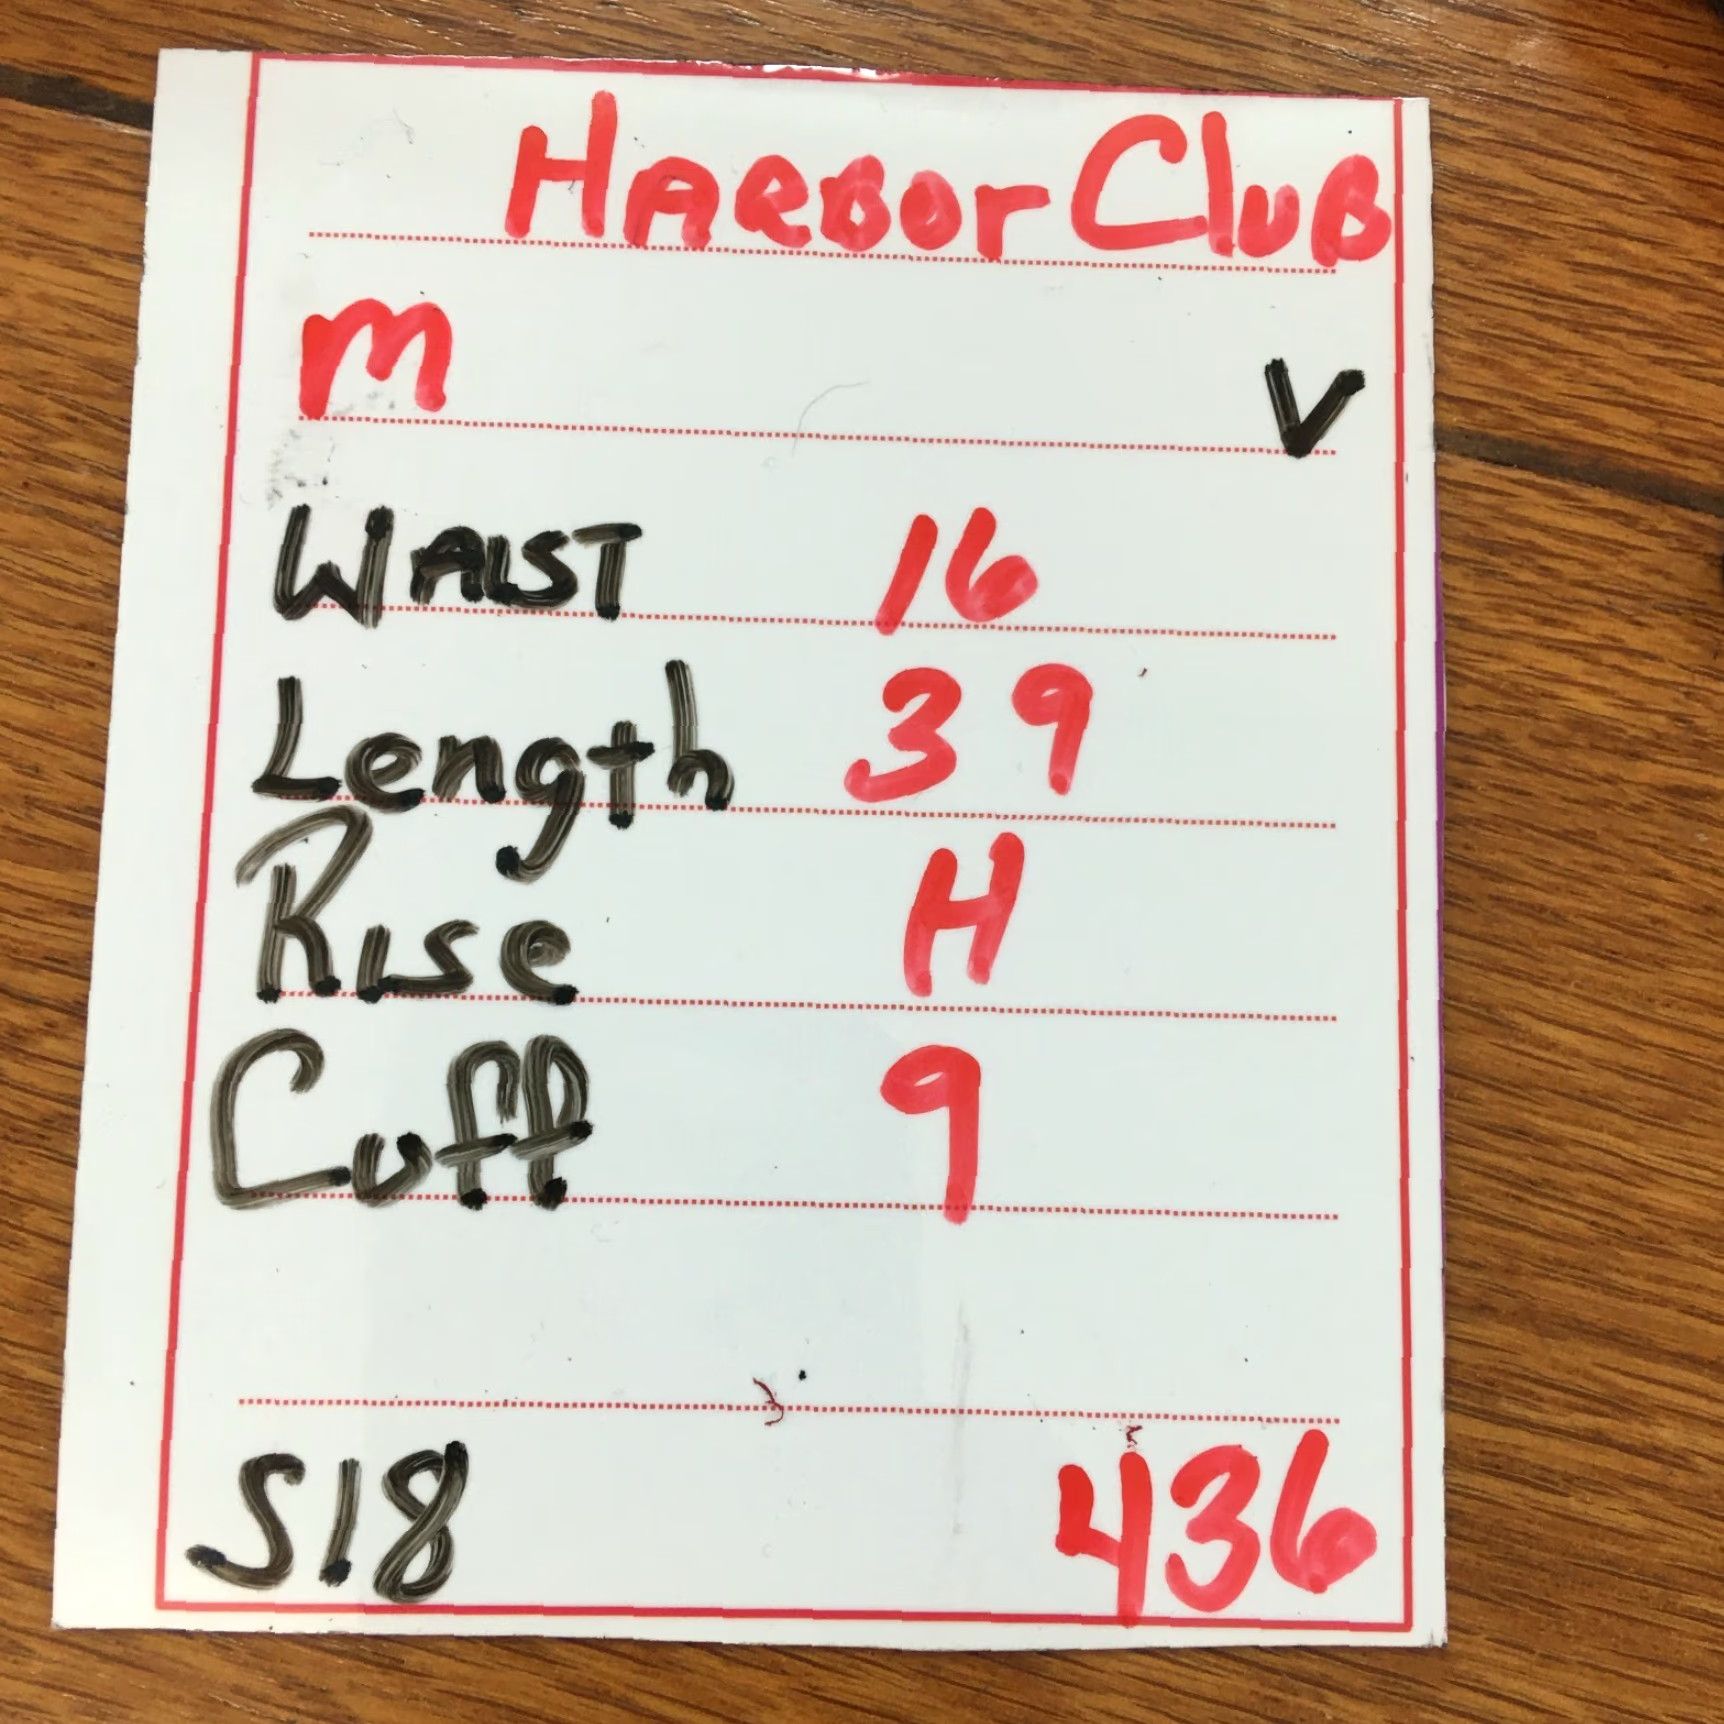 HARBOr CluB
M V
WAIST 16
Length 39
Rise H
Cuff 9
S18 436